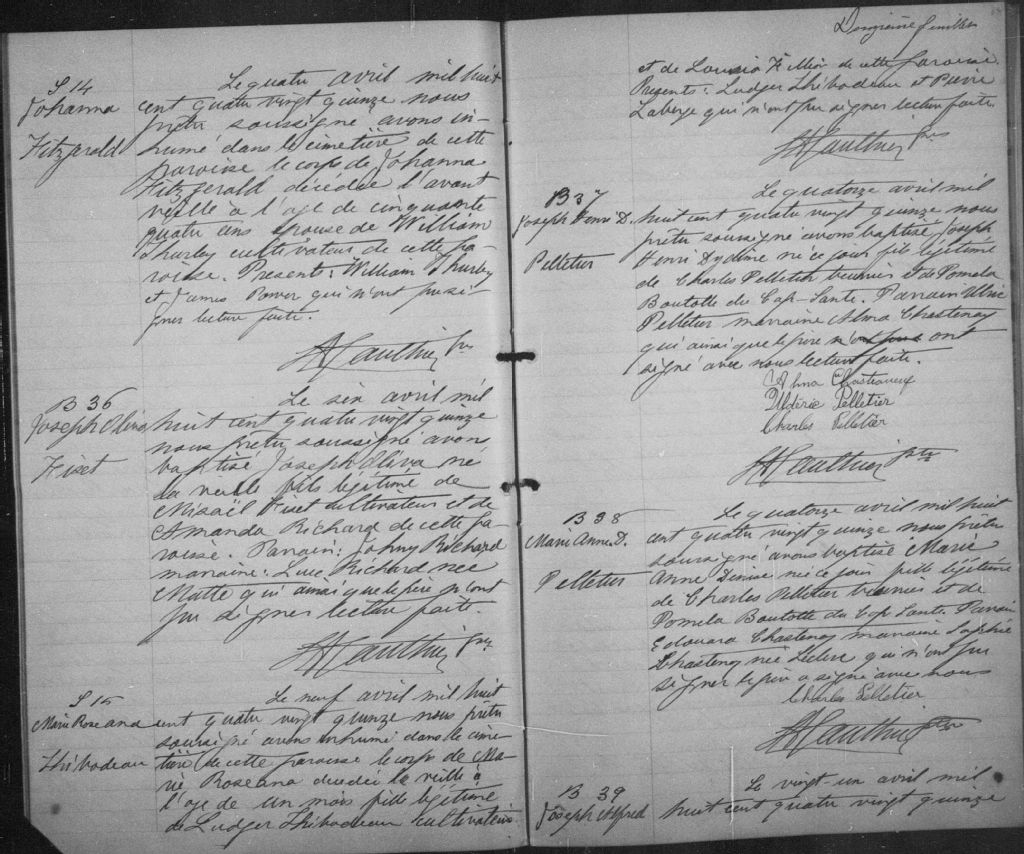 S 14
Johanna
Fitzgerald
Le quatre avril mil huit
cent quatre vingt quinze nous
prêtre soussigné avons in-
humé dans le cimetière de cette
paroisse le corps de Johanna
Fitzgerald décédée l'avant
veille à l'age de cinquante
quatre ans épouse de William
Thurley cultivateur de cette pa-
roisse. Present: William Thurley
et James Power qui n'ont pu si-
gner lecture faite.
H Gauthier ptre
B 36
Joseph Oliva
Fiset
Le six avril mil
huit cent quatre vingt quinze
nous prêtre soussigné avons
baptisé Joseph Oliva né
la veille fils légitime de
Misaël Fiset cultivateur et de
Amanda Richard de cette pa-
roisse. Parrain: Johny Richard
marraine: Luce Richard née
Matte qui ainsi que le père n'ont
pu signer lecture faite.
H Gauthier ptre
S 15
Marie Roseana
Thibodeau
Le neuf avril mil huit
cent quatre vingt quinze nous prêtre
soussigné avons inhumé dans le cime-
tière de cette paroisse le corps de Ma-
rie Roseana décédée la veille à
l'age de un mois fille légitime
de Ludger Thibodeau cultivateur
Deuxième feuillet
et de Fillion de cette paroisse.
Presents: Ludger Thibodeau et Pierre
Laberge qui n'ont pu signer lecture faite.
H Gauthier ptre
B 37
Joseph Henri D.
Pelletier
Le quatorze avril mil
huit cent quatre vingt quinze nous
prêtre soussigné avons baptisé Joseph
Henri Dydime né ce jour fils légitime
de Charles Pelletier meunier et de Pomela
Boutotte du Cap-Santé. Parrain Ulric
Pelletier marraine Alma Chastenay
qui ainsi que le père n'ont pu ont
signé avec nous lecture faite.
Alma Chastenay
Uldéric Pelletier
Charles Pelletier
H Gauthier ptre
B 38
Marie Anne D.
Pelletier
Le quatorze avril mil huit
cent quatre vingt quinze nous prêtre
soussigné avons baptisé Marie
Anne Denise née ce jour fille légitime
de Charles Pelletier meunier et de
Pomela Boutotte du Cap Santé Parrain
Edouard Chastenay marraine Sophie
Chastenay née Leclerc qui n'ont pu
signer le père a signé avec nous
Charles Pelletier
H Gauthier ptre
B 39
Joseph Alfred
Le vingt-un avril mil
huit cent quatre vingt quinze